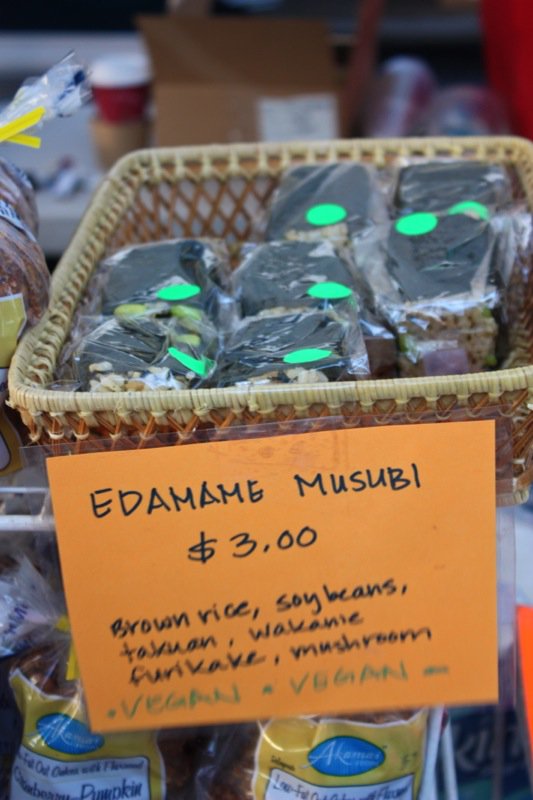 EDAMAME MUSUBI
$3.00
Brown rice, soybeans,
takuan, wakame
furikake, mushroom
• VEGAN • VEGAN –
Akamai
Low-Fat Oat Cakes with Flavored
Cranberry-Pumpkin
Akamai
FOODS
Low-Fat Oat Cakes with Flavored